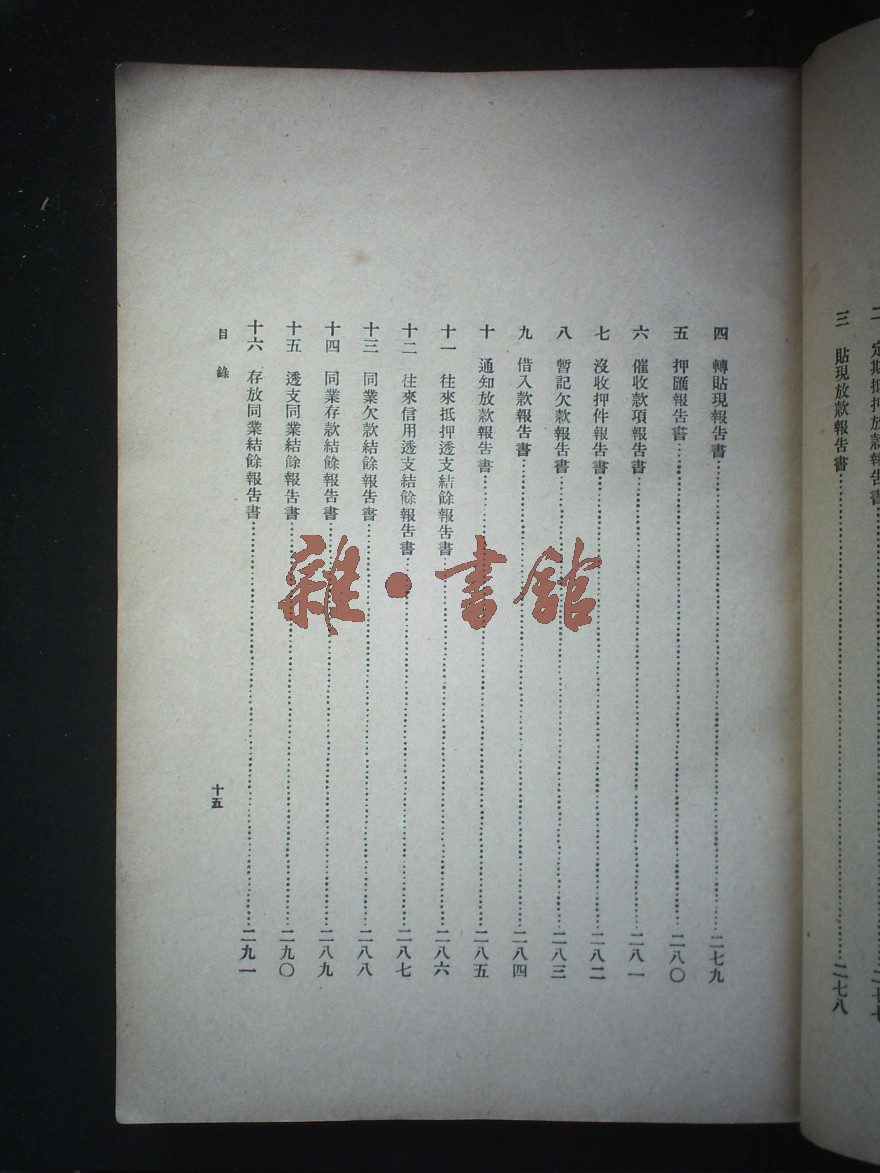 二 定期抵押放款報告書……二七七
三 貼現放款報告書……二七八
四 轉貼現報告書……二七九
五 押匯報告書……二八〇
六 催收款項報告書……二八一
七 沒收押件報告書……二八二
八 暫記欠款報告書……二八三
九 借入款報告書……二八四
十 通知放款報告書……二八五
十一 往來抵押透支結餘報告書……二八六
十二 往來信用透支結餘報告書……二八七
十三 同業欠款結餘報告書……二八八
十四 同業存款結餘報告書……二八九
十五 透支同業結餘報告書……二九〇
十六 存放同業結餘報告書……二九一
目錄 十五
雜·書館